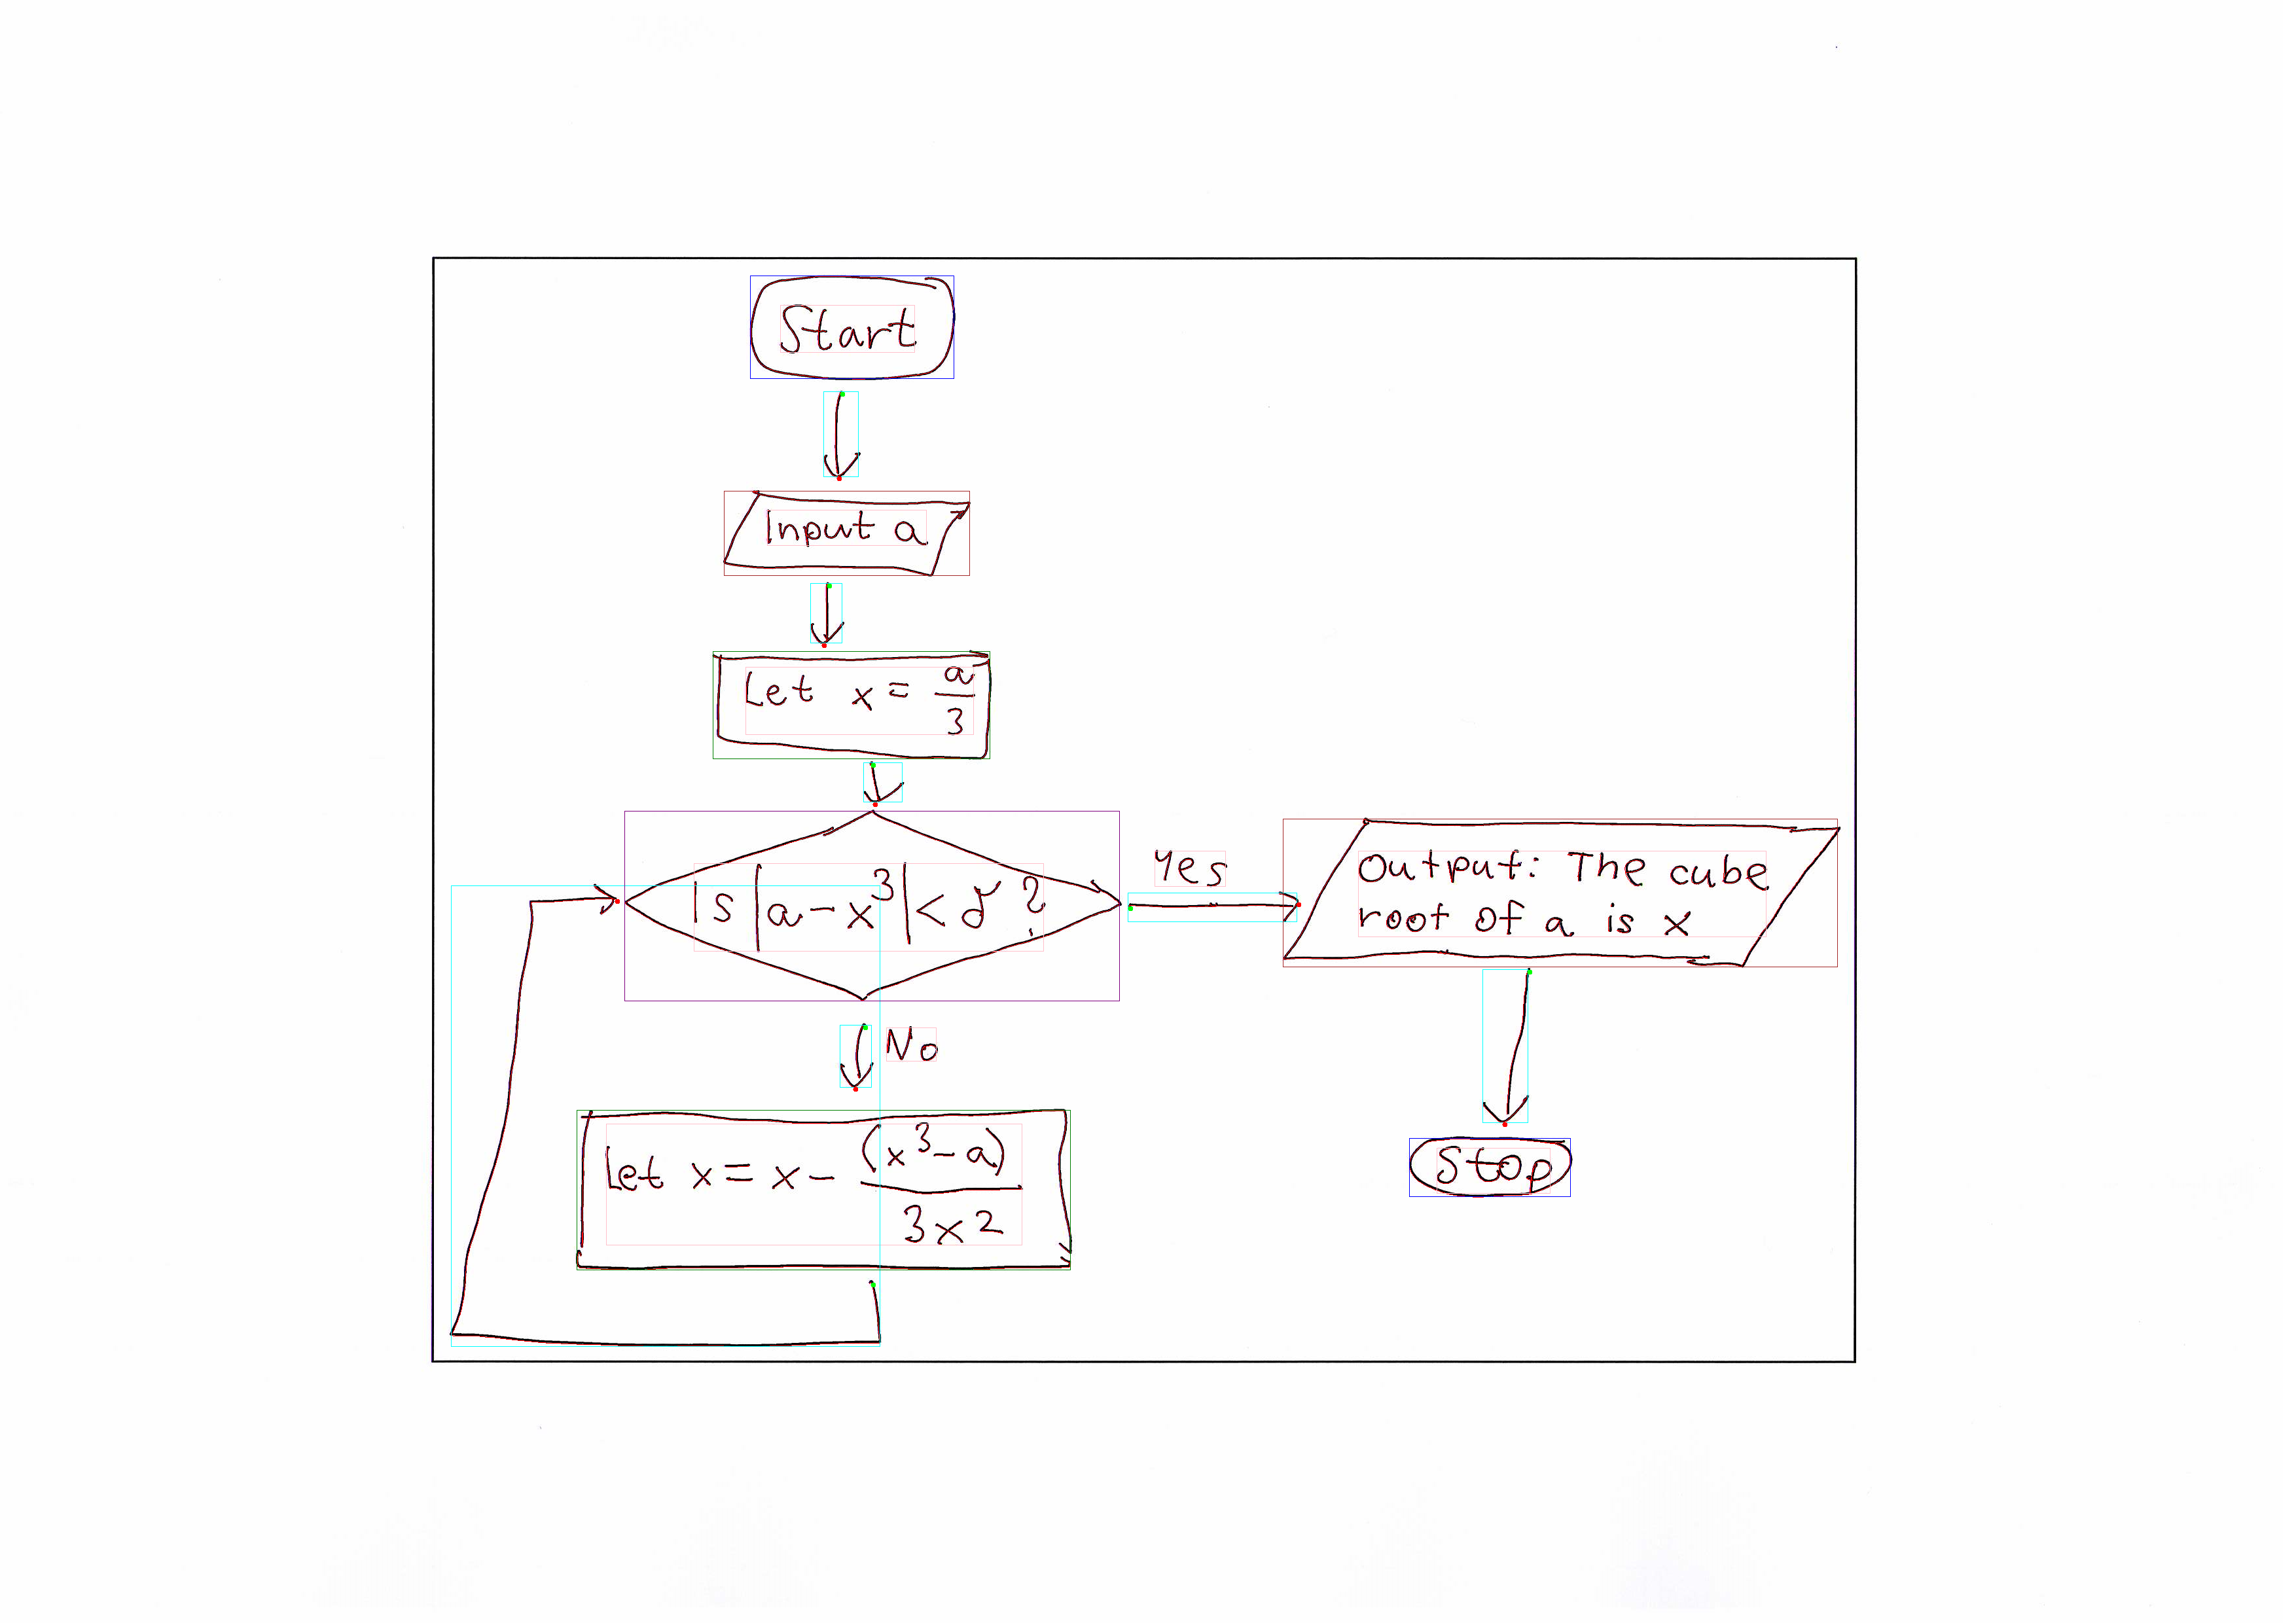 Start
Input a
Let x = a/3
Is |a-x³| < δ ?
Yes
Output: The cube
root of a is x
No
Let x = x - (x³-a)/3x2
Stop